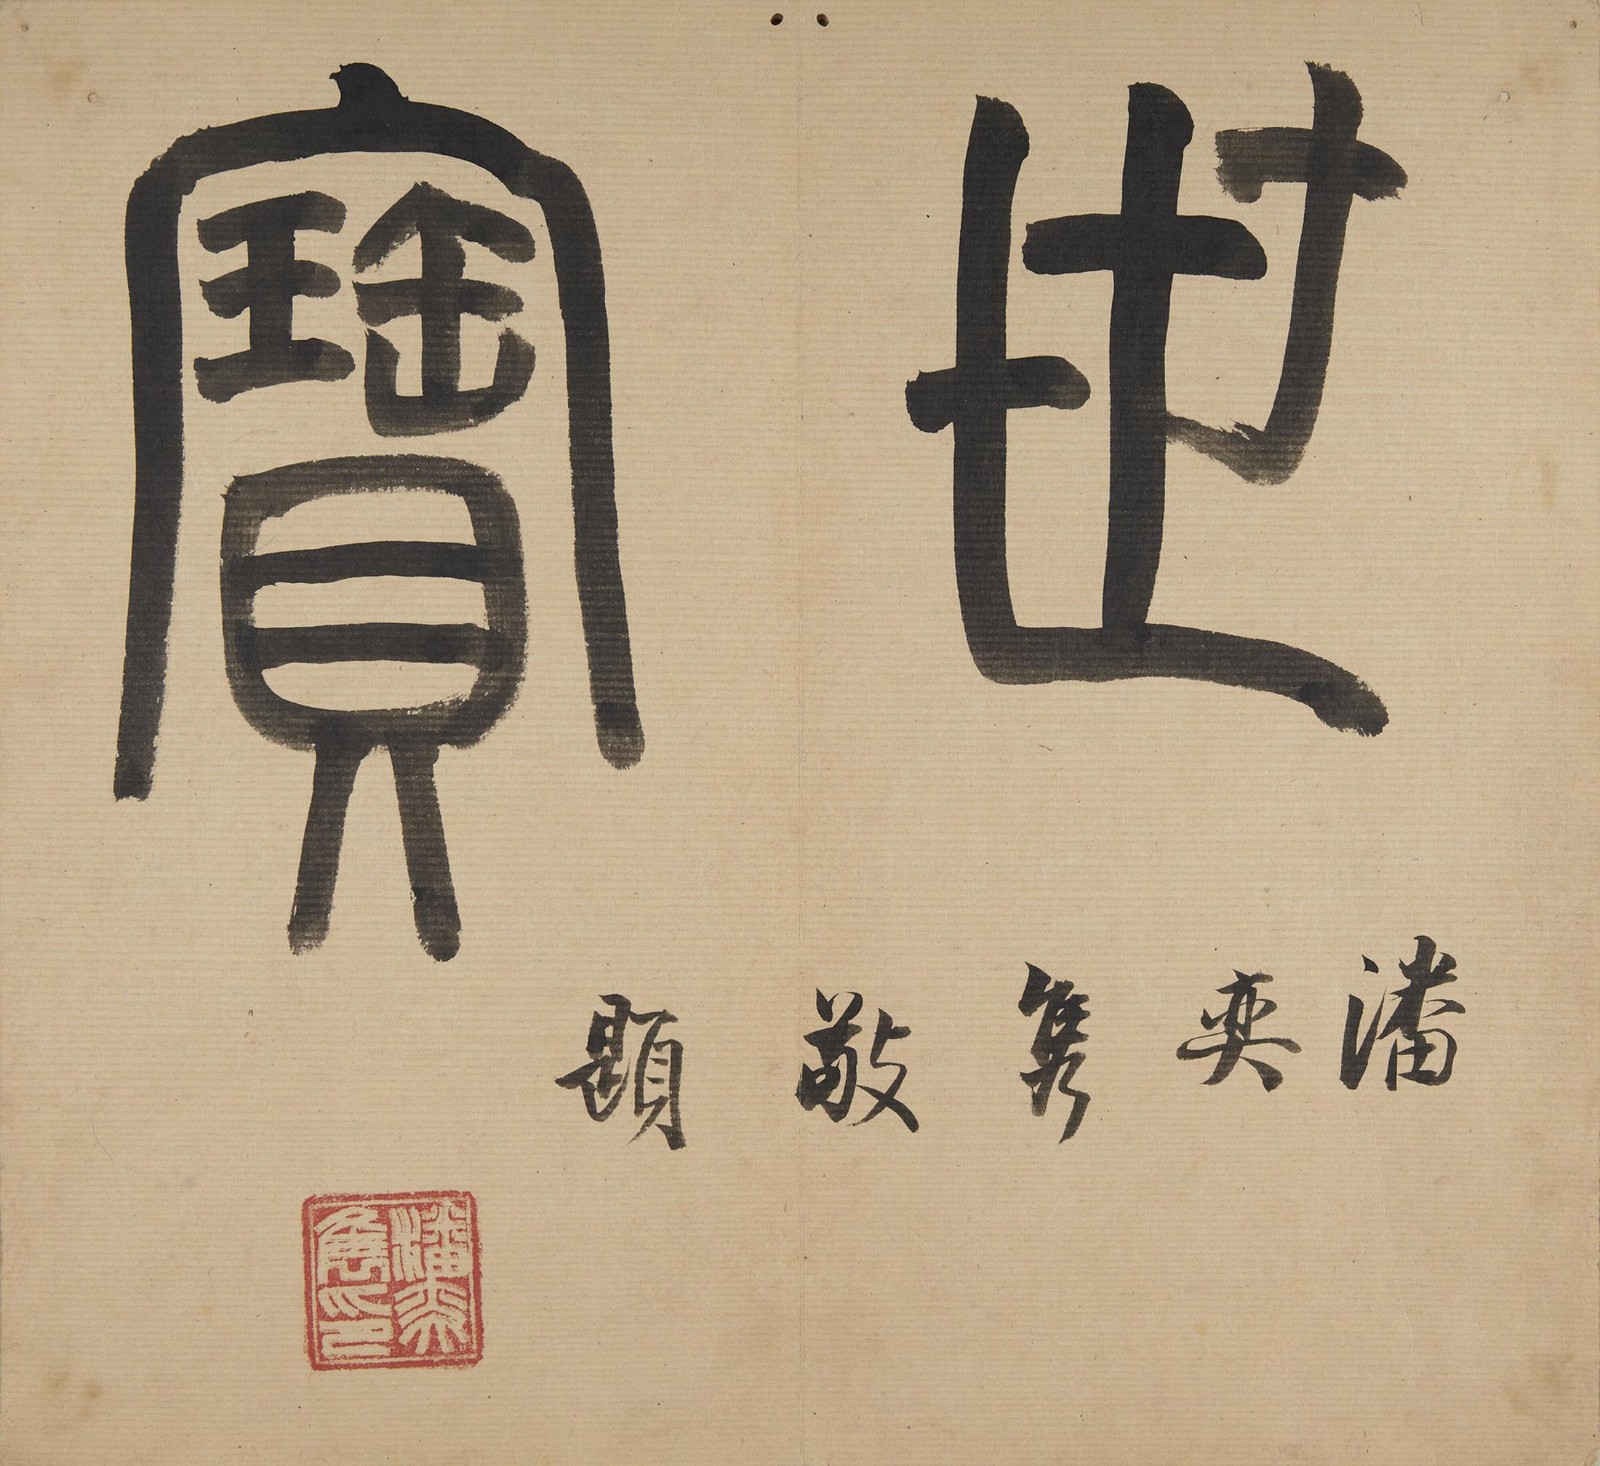 世寶
潘奕雋敬題
潘奕雋印